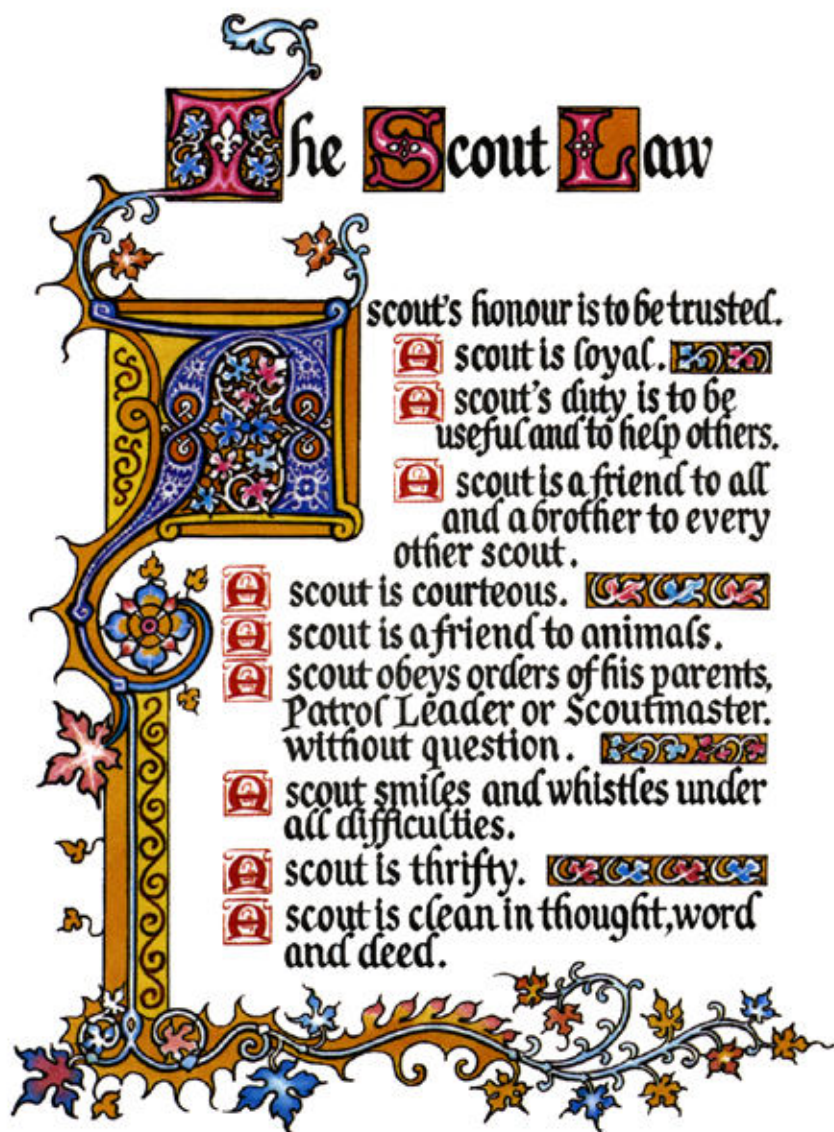 The Scout Law
A scout's honour is to be trusted.
A scout is loyal.
A scout's duty is to be
useful and to help others.
A scout is a friend to all
and a brother to every
other scout.
A scout is courteous.
A scout is a friend to animals.
A scout obeys orders of his parents,
Patrol Leader or Scoutmaster.
without question.
A scout smiles and whistles under
all difficulties.
A scout is thrifty.
A scout is clean in thought, word
and deed.